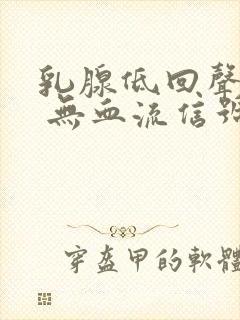 乳腺低回聲
無血流信號
穿盔甲的軟體